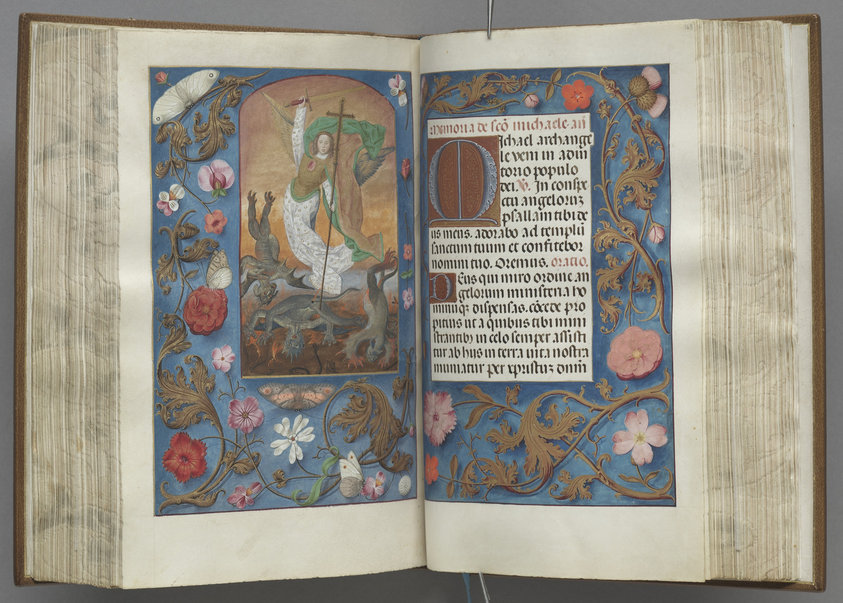 Memoria de scō michaele. añ
Michael archange
le veni in adiu
torio populo
dei. V. In conspe
ctu angelorum
psallam tibi de
us meus. adorabo ad templū
sanctum tuum et confitebor
nomini tuo. Oremus. oratio.
Deus qui miro ordine an
gelorum ministeria ho
minūqꝫ dispensas. cōcede pro
pitius ut a quibus tibi mini
strantibꝫ in celo semper assisti
tur ab hijs in terra vita nostra
muniatur per xp̄ristum dn̄m